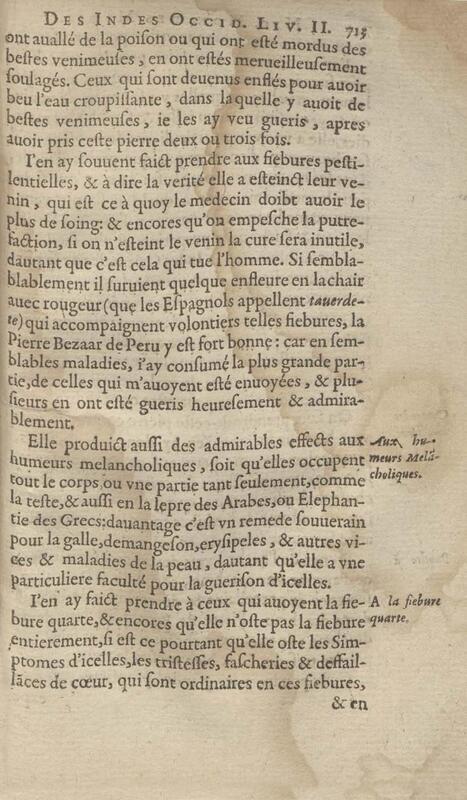 DES INDES OCCID. LIV. II. 715
ont auallé de la poison ou qui ont esté mordus des
bestes venimeuses, en ont estés merueilleusement
soulagés. Ceux qui sont deuenus enflés pour auoir
beu l'eau croupissante, dans laquelle y auoit de
bestes venimeuses, ie les ay veu gueris, apres
auoir pris ceste pierre deux ou trois fois.
I'en ay souuent faict prendre aux fiebures pesti-
lentielles, & à dire la verité elle a esteinct leur ve-
nin, qui est ce à quoy le medecin doibt auoir le
plus de soing: & encores qu'on empesche la putre-
faction, si on n'esteint le venin la cure sera inutile,
dautant que c'est cela qui tue l'homme. Si sembla-
blablement il suruient quelque enfleure en lachair
auec rougeur (que les Espagnols appellent tauerde-
te) qui accompaignent volontiers telles fiebures, la
Pierre Bezaar de Peru y est fort bonne: car en sem-
blables maladies, i'ay consumé la plus grande par-
tie, de celles qui m'auoyent esté enuoyées, & plu-
sieurs en ont esté gueris heuresement & admira-
blement.
Elle produict aussi des admirables effects aux
humeurs melancholiques, soit qu'elles occupent
tout le corps ou vne partie tant seulement, comme
la teste, & aussi en la lepre des Arabes, ou Elephan-
tie des Grecs: dauantage c'est vn remede souuerain
pour la galle, demangeson, erysipeles, & autres vi-
ces & maladies de la peau, dautant qu'elle a vne
particuliere faculté pour la guerison d'icelles.
I'en ay faict prendre à ceux qui auoyent la fie-
bure quarte, & encores qu'elle n'oste pas la fiebure
entierement, si est ce pourtant qu'elle oste les Sim-
ptomes d'icelles, les tristesses, fascheries & deffail-
lāces de cœur, qui sont ordinaires en ces fiebures,
& en
Aux hu-
meurs Melā-
choliques.
A la fiebure
quarte.